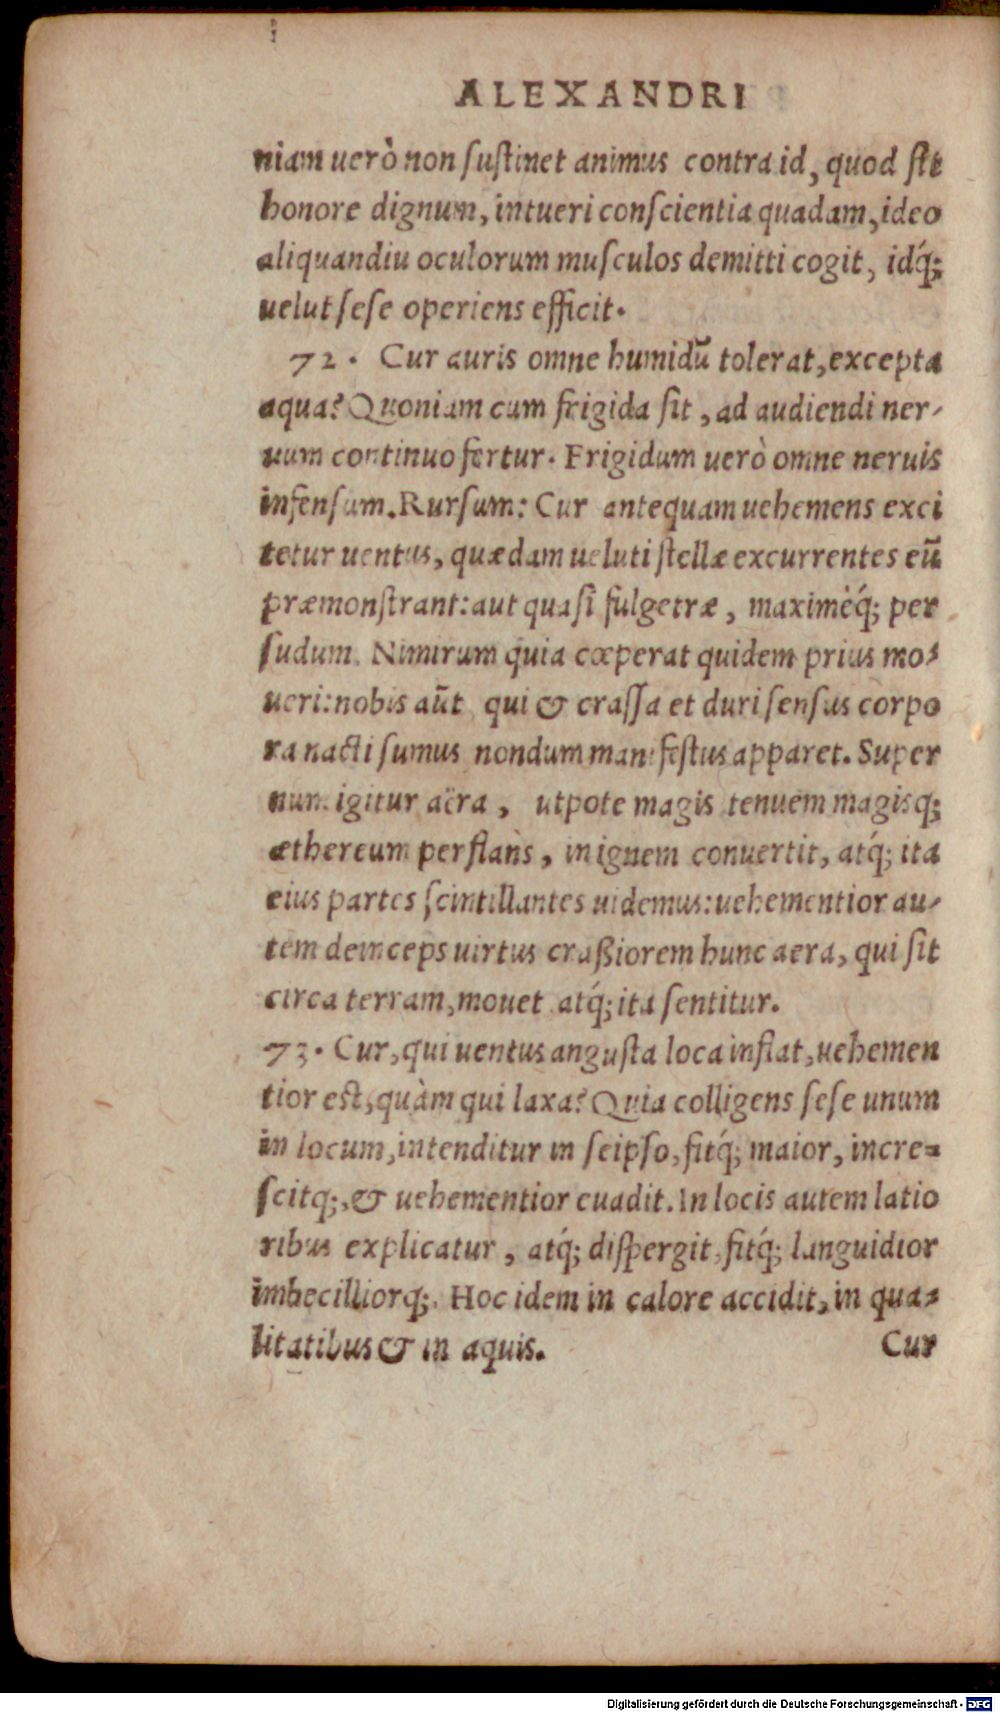 ALEXANDRI
niam uerò non sustinet animus contra id, quod sit
honore dignum, intueri conscientia quadam, ideo
aliquandiu oculorum musculos demitti cogit, idq́;
uelut sese operiens efficit.
72. Cur auris omne humidũ tolerat, excepta
aqua? Quoniam cum frigida sit, ad audiendi ner-
uum continuo fertur. Frigidum uerò omne neruis
infensum. Rursum: Cur antequam uehemens exci
tetur uentus, quædam ueluti stellæ excurrentes eũ
præmonstrant: aut quasi fulgetræ, maximéq́; per
sudum. Nimirum quia cœperat quidem prius mo-
ueri: nobis aũt qui & crassa et duri sensus corpo
ra nacti sumus nondum manifestus apparet. Super
num igitur aëra, utpote magis tenuem magisq́;
æthereum perflans, in ignem conuertit, atq́; ita
eius partes scintillantes uidemus: uehementior au-
tem deinceps uirtus craßiorem hunc aera, qui sit
circa terram, mouet atq́; ita sentitur.
73. Cur, qui uentus angusta loca inflat, uehemen
tior est, quàm qui laxa? Quia colligens sese unum
in locum, intenditur in seipso, fitq́; maior, incre-
scitq́;, & uehementior euadit. In locis autem latio
ribus explicatur, atq́; dispergit, fitq́; languidior
imbecilliorq́;. Hoc idem in calore accidit, in qua-
litatibus & in aquis. Cur
Digitalisierung gefördert durch die Deutsche Forschungsgemeinschaft - DFG